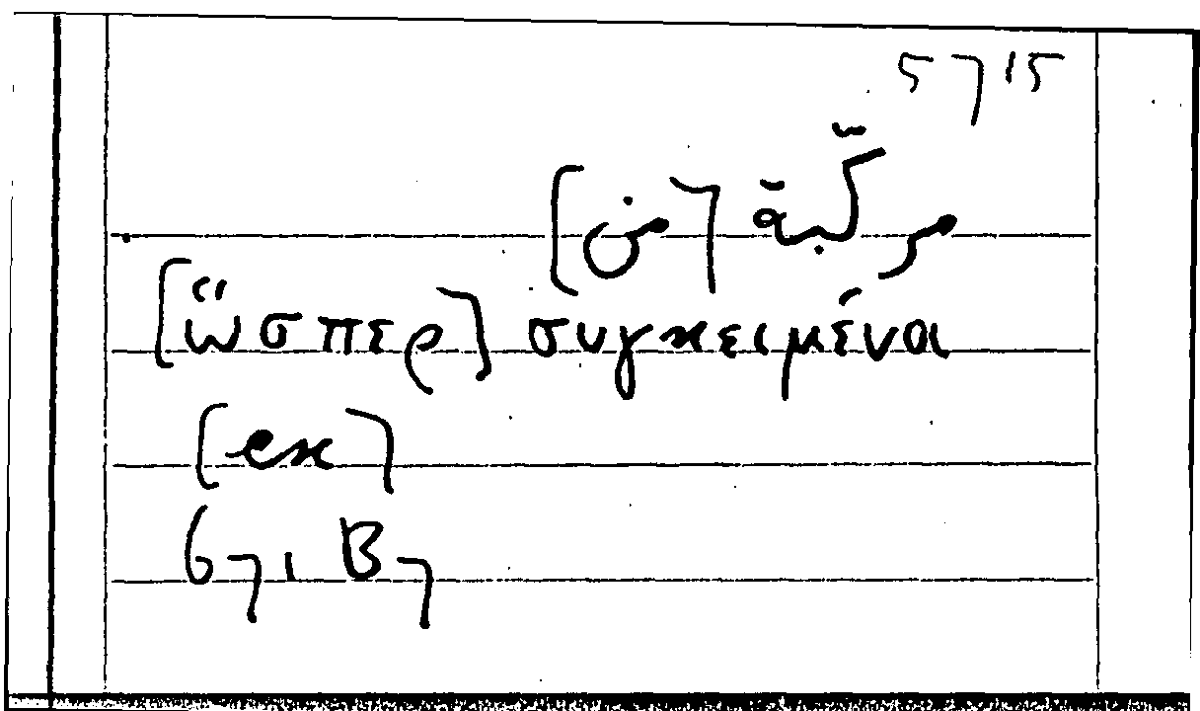 5715
مركبة [من]
[ὥσπερ] συγκειμέναι
[ex]
67, B7